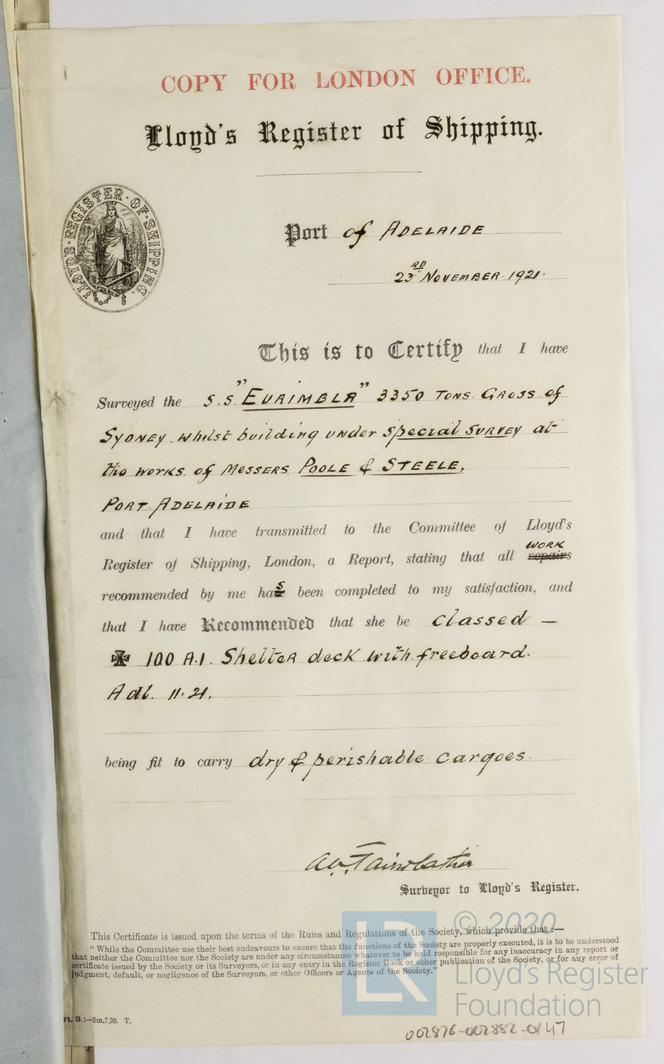 COPY FOR LONDON OFFICE.
Lloyd's Register of Shipping.
LLOYD'S · REGISTER · OF · SHIPPING.
Port of ADELAIDE
23RD NOVEMBER 1921.
This is to Certify that I have
Surveyed the S.S. "EURIMBLA" 3350 TONS GROSS of
SYDNEY whilst building under Special SURVEY at
the WORKS of MESSERS POOLE & STEELE,
PORT ADELAIDE
and that I have transmitted to the Committee of Lloyd's
WORK
Register of Shipping, London, a Report, stating that all repairs
recommended by me has been completed to my satisfaction, and
that I have Recommended that she be classed —
✠ 100 A.1. Shelter deck with freeboard.
Adl. 11.21.
being fit to carry dry & perishable cargoes
Surveyor to Lloyd's Register.
This Certificate is issued upon the terms of the Rules and Regulations of the Society, which provide that :—
"While the Committee use their best endeavours to ensure that the functions of the Society are properly executed, it is to be understood
that neither the Committee nor the Society are under any circumstances whatever to be held responsible for any inaccuracy in any report or
certificate issued by the Society or its Surveyors, or in any entry in the Register Book or other publication of the Society, or for any error of
judgment, default, or negligence of the Surveyors, or other Officers or Agents of the Society."
rt. B.1—5m,7,20. T.
© 2020
LR
Lloyd's Register
Foundation
002876-002882-0147